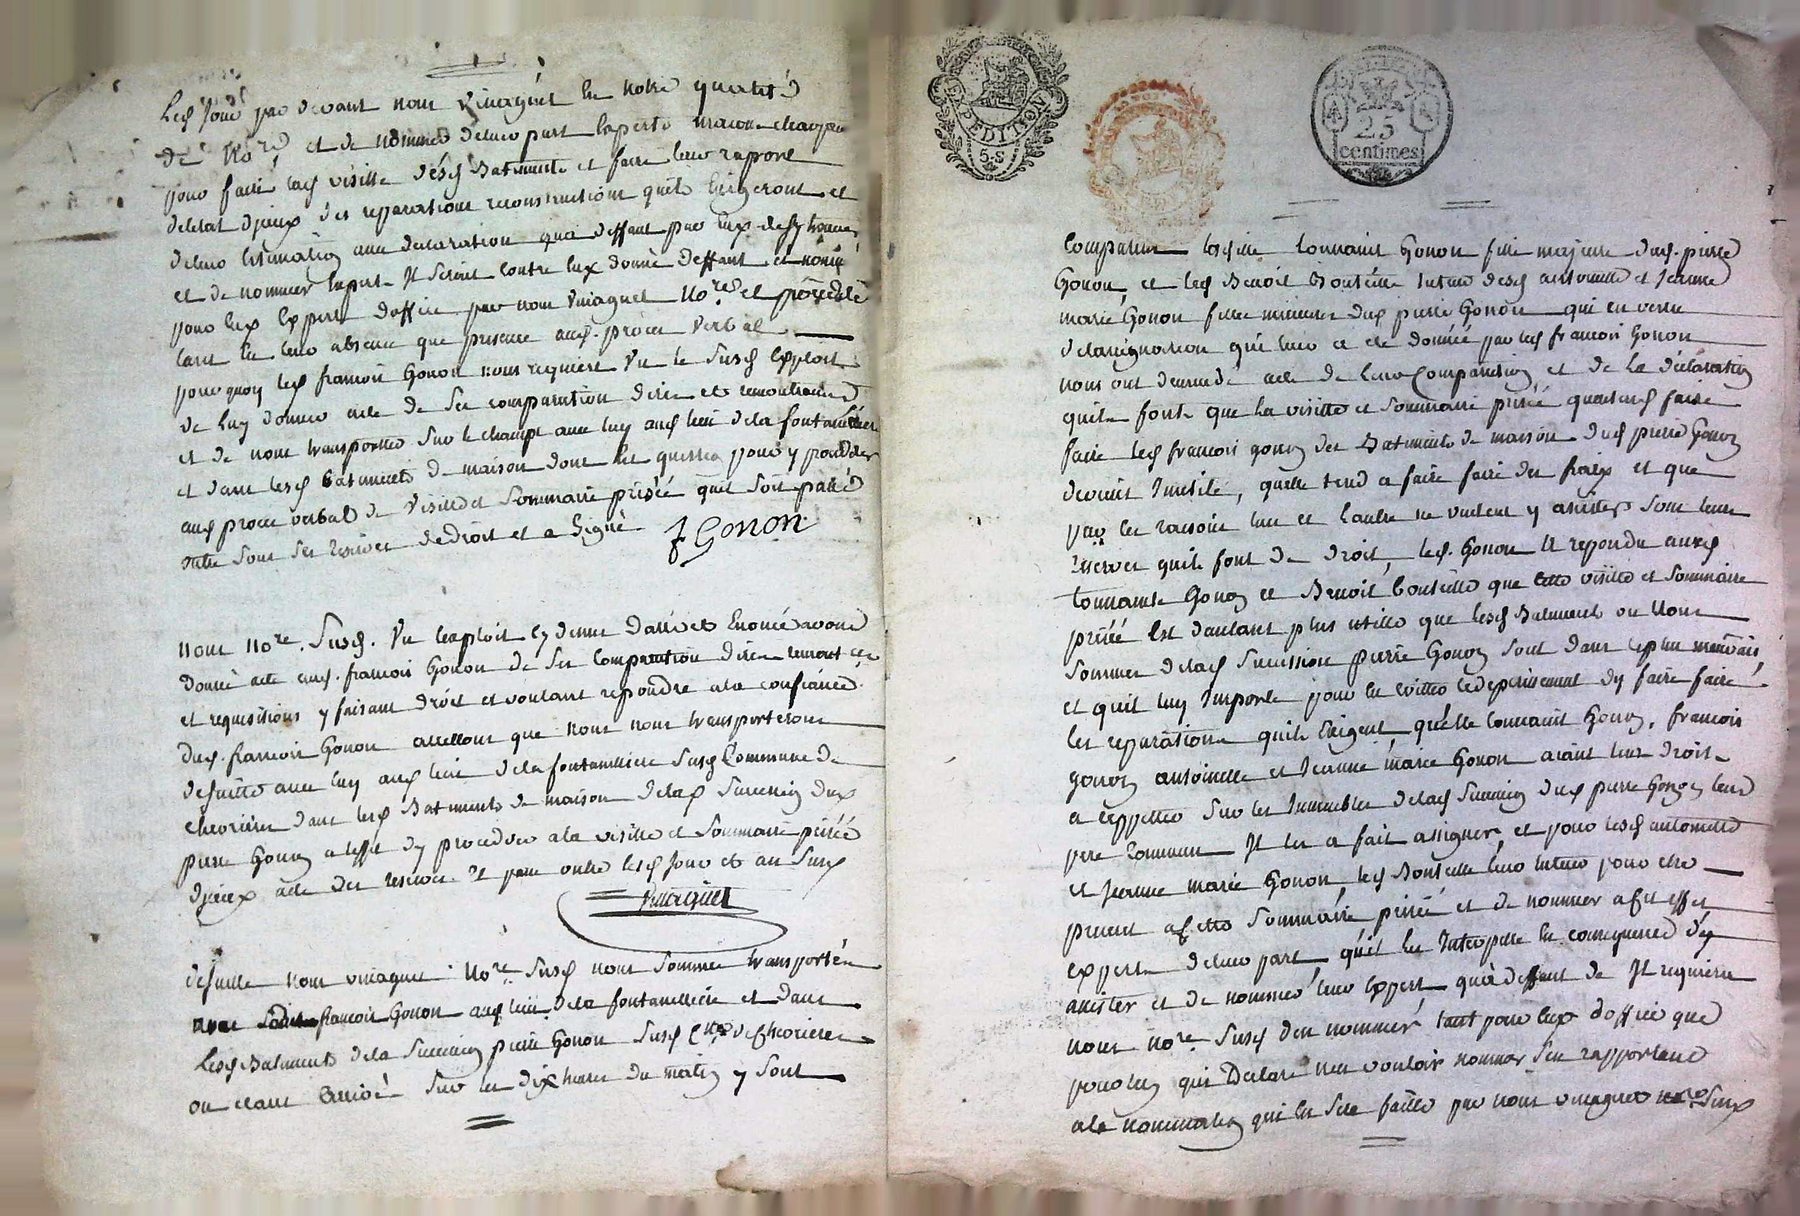 Led. Jour par devant nous vinagnet En notre qualité
de No.re et de nommer de leur part Experts maison charpen
pour faire lad. visitte desd. Batiments et faire leur rapport
de letat diceux des reparations reconstructions quils Exigeront et
de leur Estimation avec declaration qua deffaut par Eux de sy trouver
et de nommer Expert. Il seroit contre Eux donné deffaut et nommé
pour Eux Expert doffice par nous vinagnet No.re et procédé
tant En leur absence que presence aud. procès verbal
pourquoy led. francois Gonon nous requiert Vu le susd. Exploit
de luy donner acte de ses comparution dires et remontrances
et de nous transporter sur le champs avec luy aud. lieu de la fontanelliere
et dans lesd. batiments de maison dont Est question pour y proceder
aud. proces verbal de visitte et sommaire prisée qui soit passé
outre sous ses reserves de droit et a Signé F Gonon
Nous No.re Susd. Vu lexploit cy dessus datté et Enoncé avons
donné acte aud. francois Gonon de ses Comparution dires remontces
et requisitions y faisant droit et voulant repondre a la confiance
dud. francois Gonon accellons que nous nous transporterons
desuitte avec luy aud. lieu de la fontanilliere Susd. Commune de
chevrieres dans lesd. Batiments de maison de lad. succession dud.
pierre Gonon a leffet dy proceder a la visitte et Sommaire prisée
diceux acte des reserves Et passé outre lesd. Jour et an Susd.
Vinagnet
desuitte nous vinagnet No.re Susd. nous sommes transportés
avec ledit francois Gonon aud. lieu de la fontanilliere et dans
lesd. Batiments de la Succession pierre Gonon Susd. C.ne de chevrieres
ou etant arrivé Sur les dix heures du matin y sont
EXPEDITION
5.S
25
centimes
Comparus lad. ... Gonon fille majeure dud. pierre
Gonon, et led. Benoit Bouteille tuteur desd. antoinette et Jeanne
marie Gonon filles mineures dud. pierre Gonon qui en vertu
de lassignation qui leur a été donnée par led. francois Gonon
nous ont demandé acte de leur Comparution et de la déclaration
quils font que la visitte et sommaire prisée quentend faire
faire led. francois gonon des Batiments de maison dud. pierre Gonon
devient Inutile, quelle tend a faire faire des fraix et que
par ces raisons lun et lautre ne veulent y assister sous leurs
reserves quils font de droit, led. Gonon a repondu auxd.
... Gonon et Benoit bouteille que cette visitte et sommaire
prisée Est dautant plus utille que lesd. Batiments ou Nous
sommes de lad. succession pierre Gonon sont dans le plus mauvais,
et quil luy Importe pour En Eviter le deperissement dy faire faire
les reparations quils Exigent quelle ... Gonon, francois
gonon antoinette et Jeanne marie Gonon aiant leur droit
a reppetter sur les Immeubles de lad. succession dud. pierre Gonon leur
pere Commun Il les a fait assigner et pour lesd. antoinette
et Jeanne marie Gonon, led. Bouteille leur tuteur pour etre
present a cette Sommaire prisée et de nommer a cet effet
experts de leur part quil les Interpelle En consequence dy
assister et de nommer leur Expert qua deffaut de Il requiere
nous No.re Susd. den nommer tant pour Eux doffice que
pour luy qui Declare nen vouloir nommer Sen rapportant
a la nomination qui En sera faitte par nous vinagnet No.re Susd.